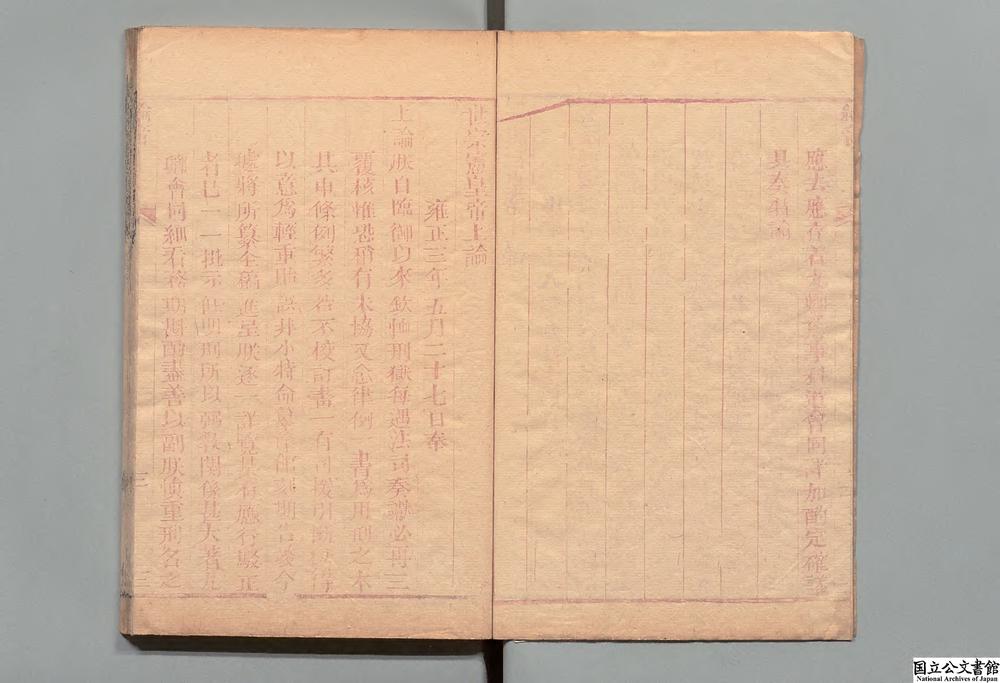 應去應存著九卿會同詳加酌定確議
具奏特諭
世宗憲皇帝上諭
雍正三年五月二十七日奉
上諭朕自臨御以來欽恤刑獄每遇法司奏讞必再三
覆核惟恐稍有未協又念律例一書爲用刑之本
其中條例繁多若不校訂畫一有司援引斷獄得
以意爲輕重貽誤非小特命纂修館刻期告竣今
據將所纂全稿進呈朕逐一詳覽其有應行駁正
者已一一批示但明刑所以弼教關係甚大著九
卿會同細看務期斟酌盡善以副朕慎重刑名之
三
国立公文書館
National Archives of Japan